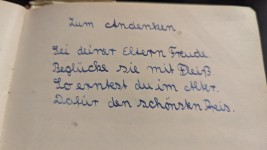 Zum Andenken.
Sei deiner Eltern Freude
Beglücke sie mit Fleiß.
So erntest du im Alter.
Dafür den schönsten Preis.